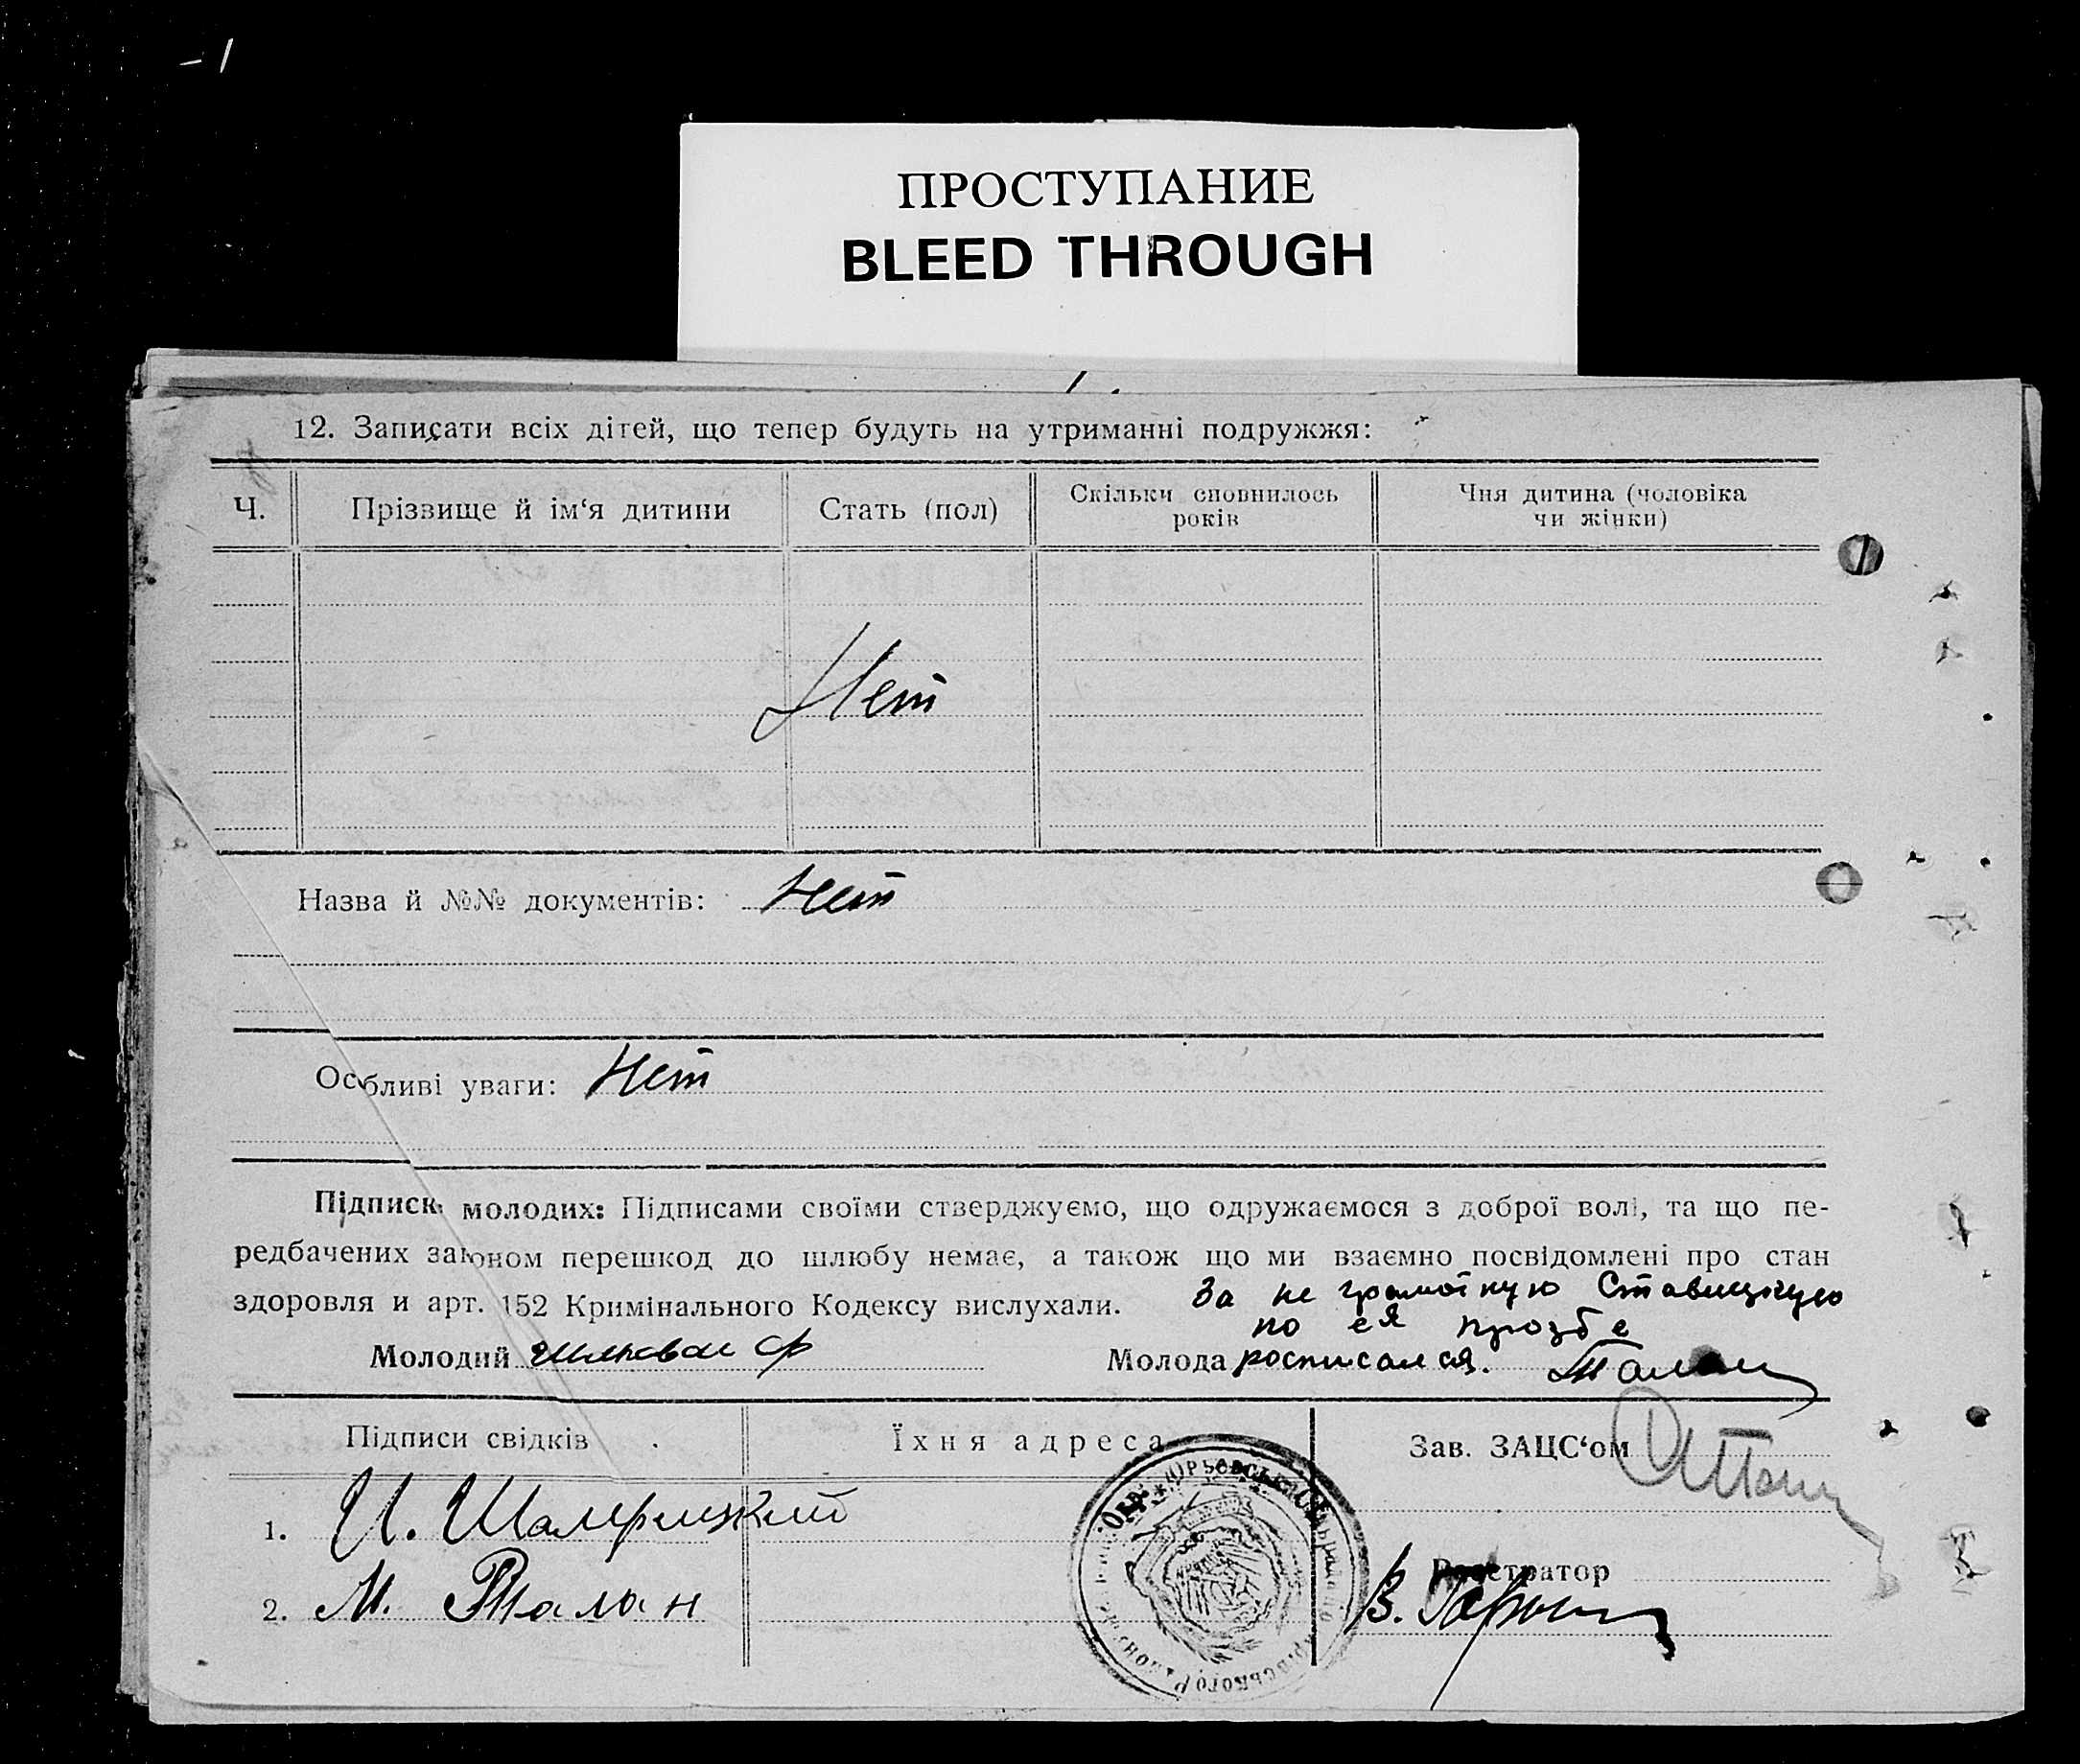 ПРОСТУПАНИЕ
BLEED THROUGH
12. Записати всіх дітей, що тепер будуть на утриманні подружжя:
Ч. Прізвище й ім‘я дитини Стать (пол) Скільки сповнилось років Чия дитина (чоловіка чи жінки)
Нет
Назва й №№ документів: Нет
Особливі уваги: Нет
Підписи молодих: Підписами своїми стверджуємо, що одружаємося з доброї волі, та що пе-
редбачених законом перешкод до шлюбу немає, а також що ми взаємно посвідомлені про стан
здоровля и арт. 152 Кримінального Кодексу вислухали.
За не грамотную Ставицкую
по ея прозбе
Молодий Молода росписался. Талан
Підписи свідків Їхня адреса Зав. ЗАЦС‘ом
1. И.
Реєстратор
2. М. Талан В.